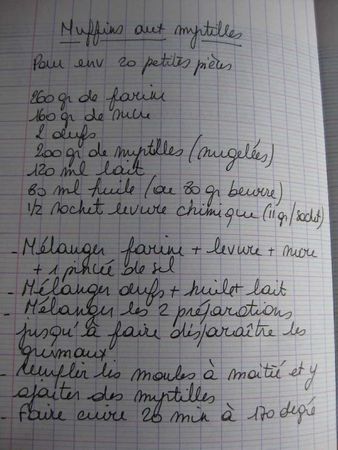 Muffins aux myrtilles
Pour env 20 petites pièces
260 gr de farine
160 gr de sucre
2 œufs
200 gr de myrtilles (surgelées)
120 ml lait
80 ml huile (ou 80 gr beurre)
1/2 sachet levure chimique (11 gr/sachet)
- Mélanger farine + levure + sucre
+ 1 pincée de sel
- Mélanger œufs + huile + lait
- Mélanger les 2 préparations
jusqu'à faire disparaître les
grumaux.
- Remplir les moules à moitié et y
ajouter des myrtilles
- Faire cuire 20 min à 170 degré